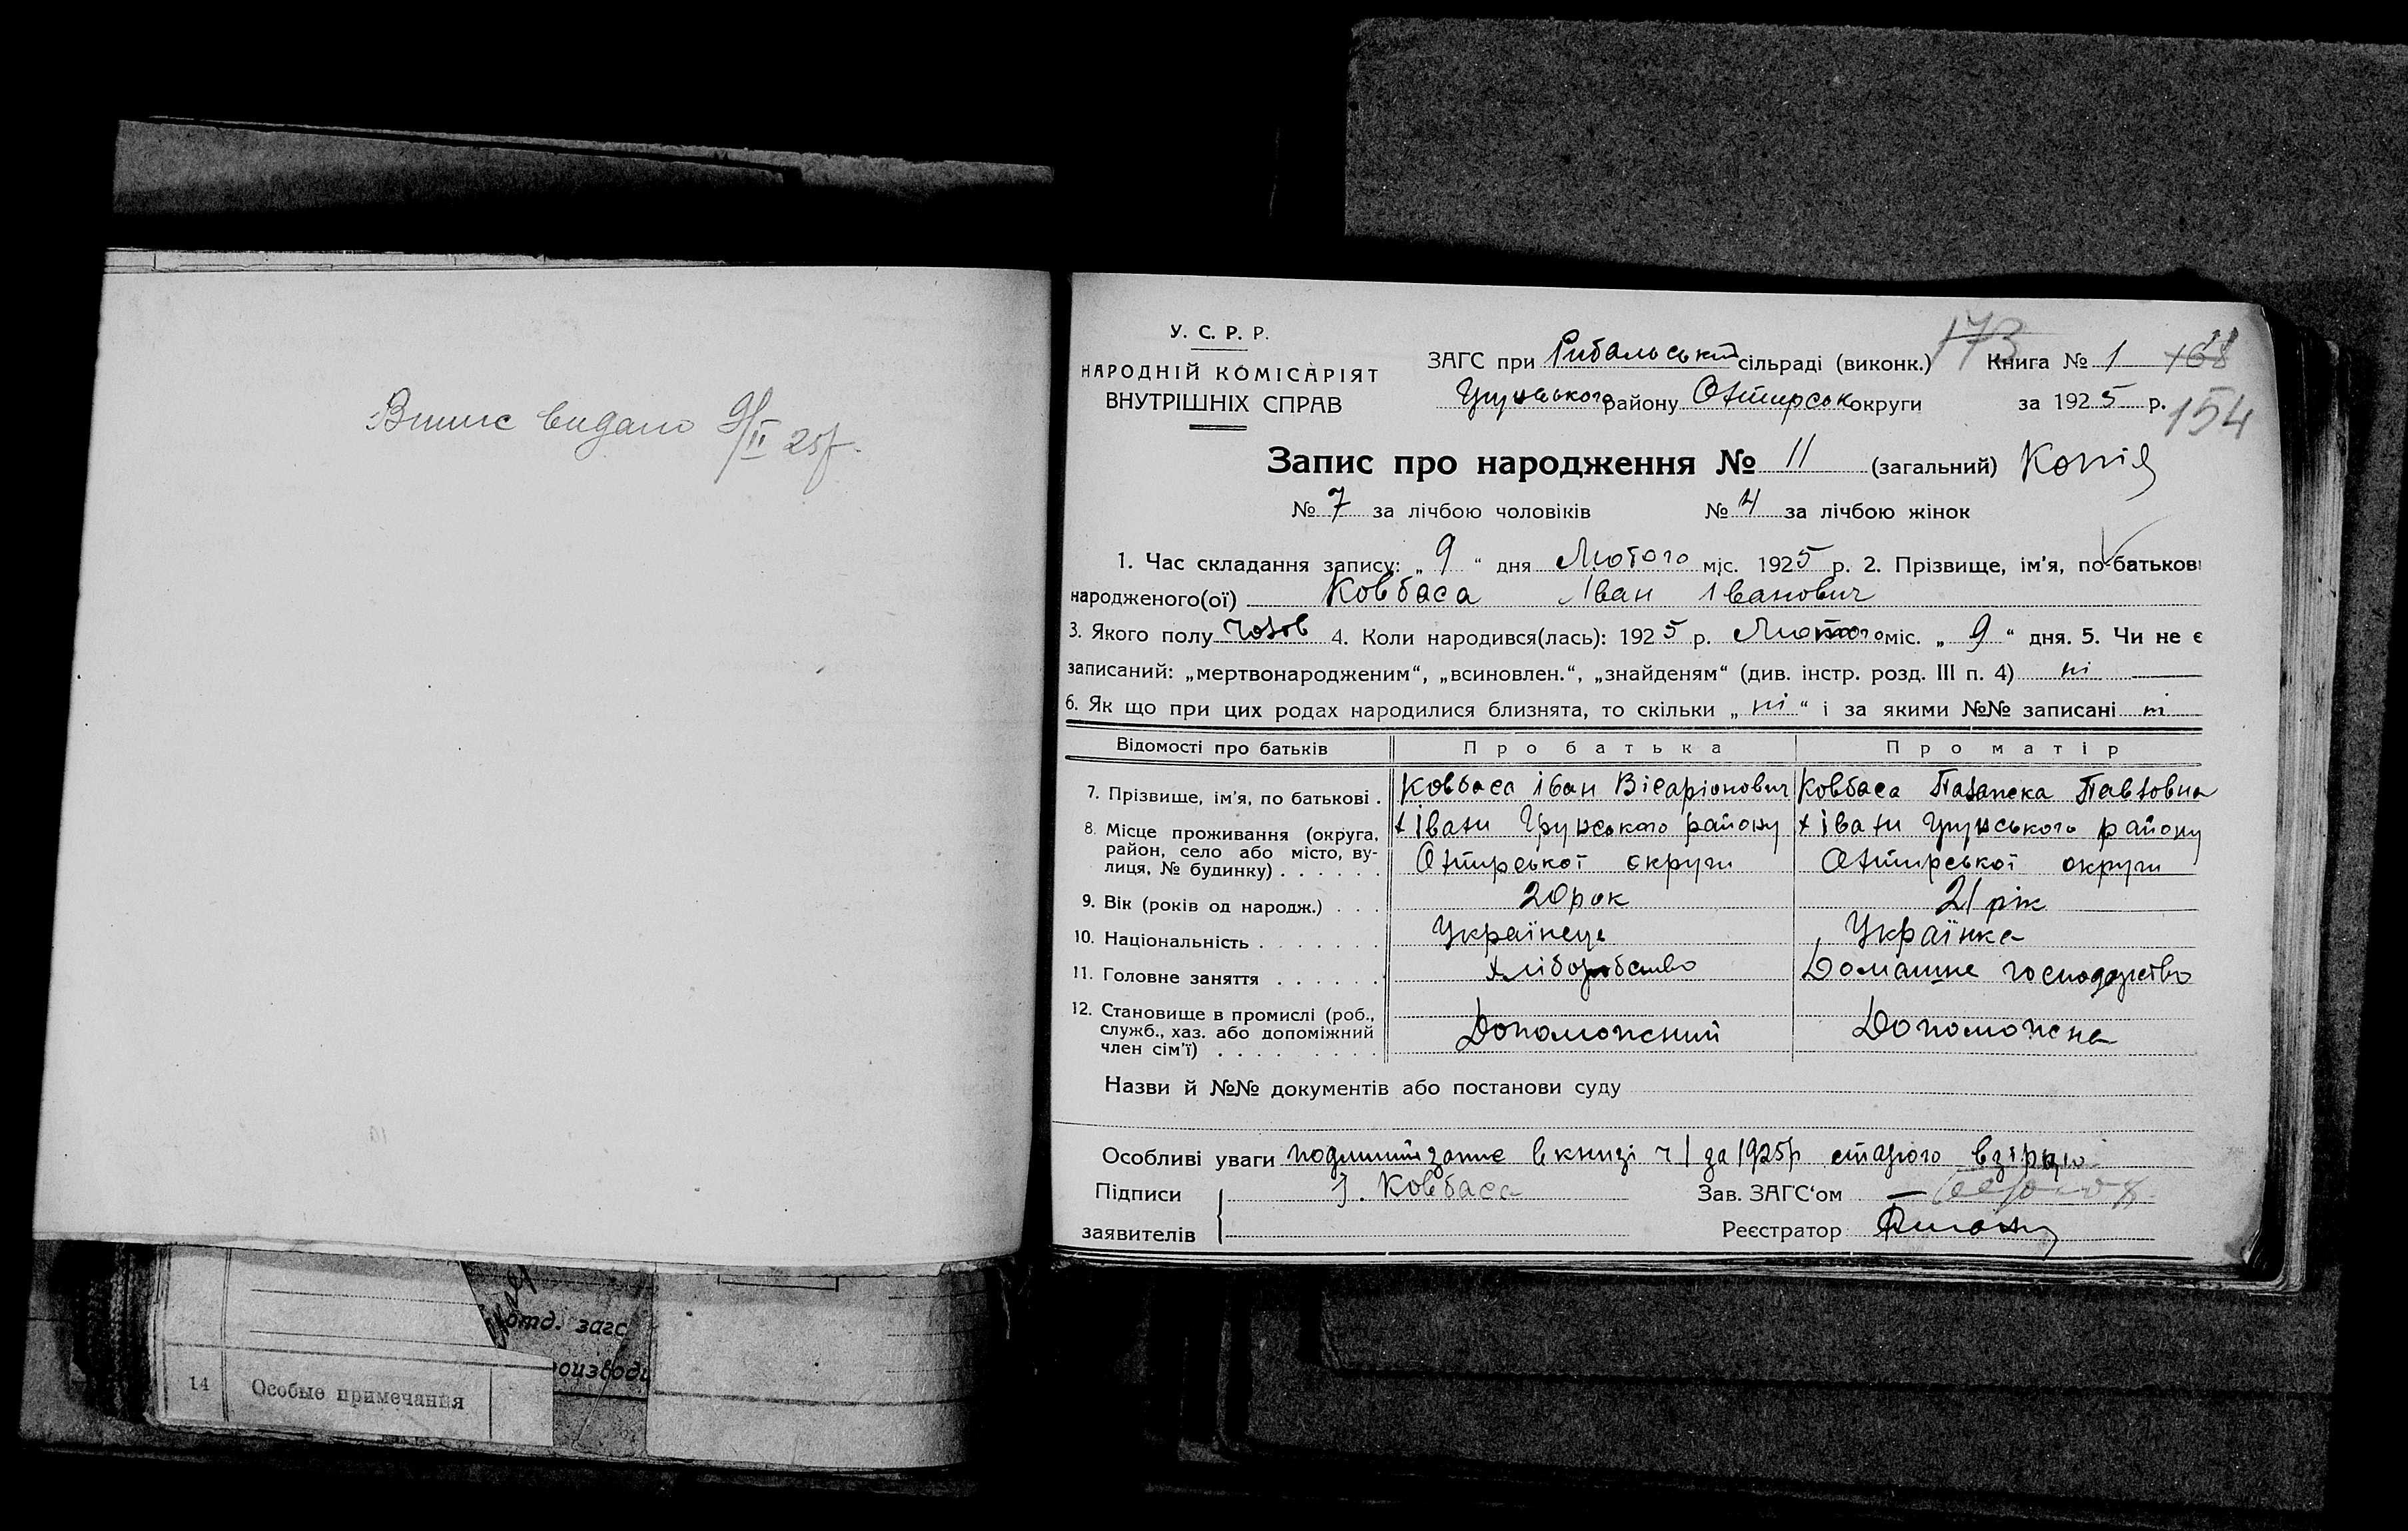 Випис видано 9/II 25р.
У. С. Р. Р.
НАРОДНІЙ КОМІСАРІЯТ
ВНУТРІШНІХ СПРАВ
ЗАГС при Рибальській сільраді (виконк.) 173 Книга № 1 168
Грунського району Охтирськ округи за 1925 р. 154
Запис про народження № 11 (загальний) Копія
№ 7 за лічбою чоловіків № 4 за лічбою жінок
1. Час складання запису: „ 9 “ дня Лютого міс. 1925 р. 2. Прізвище, ім'я, по-батькові
народженого(ої) Ковбаса Іван Іванович
3. Якого полу чолов 4. Коли народився(лась): 1925 р. Лютого міс. „ 9 “ дня. 5. Чи не є
записаний: „мертвонародженим“, „всиновлен.“, „знайденям“ (див. інстр. розд. III п. 4) ні
6. Як що при цих родах народилися близнята, то скільки „ ні “ і за якими №№ записані ні
Відомості про батьків Про батька Про матір
7. Прізвище, ім'я, по батькові . Ковбаса Іван Вісаріонович Ковбаса Палажка Павловна
8. Місце проживання (округа, район, село або місто, вулиця, № будинку) . . . . . . х Івахи Грунського району х Івахи Грунського району
Охтирської округи Охтирської округи
9. Вік (років од народж.) . . . 20 рок 21 рік
10. Національність . . . . . . . Українець Українка
11. Головне заняття . . . . . . Хліборобство Домашнє господарство
12. Становище в промислі (роб., служб., хаз. або допоміжний член сім'ї) . . . . . . . . . Допоможний Допоможна
Назви й №№ документів або постанови суду
Особливі уваги подлинний запис в книзі ч 1 за 1925р старого взірцю
Підписи І. Ковбаса Зав. ЗАГС'ом
заявителів Реєстратор
отд. загс
оизводи
14 Особые примечания